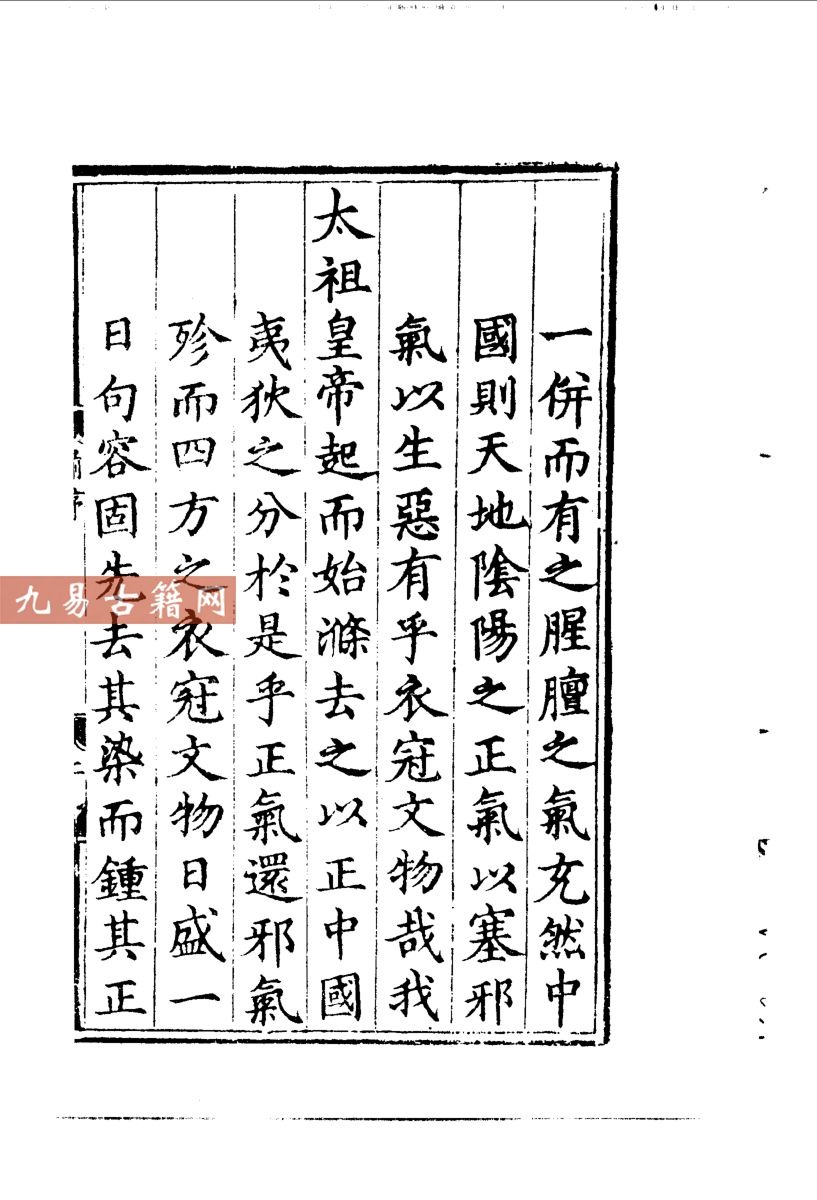 一併而有之腥膻之氣充然中
國則天地陰陽之正氣以塞邪
氣以生惡有乎衣冠文物哉我
太祖皇帝起而始滌去之以正中國
夷狄之分於是乎正氣還邪氣
殄而四方之衣冠文物日盛一
日句容固先去其染而鍾其正
九易古籍网